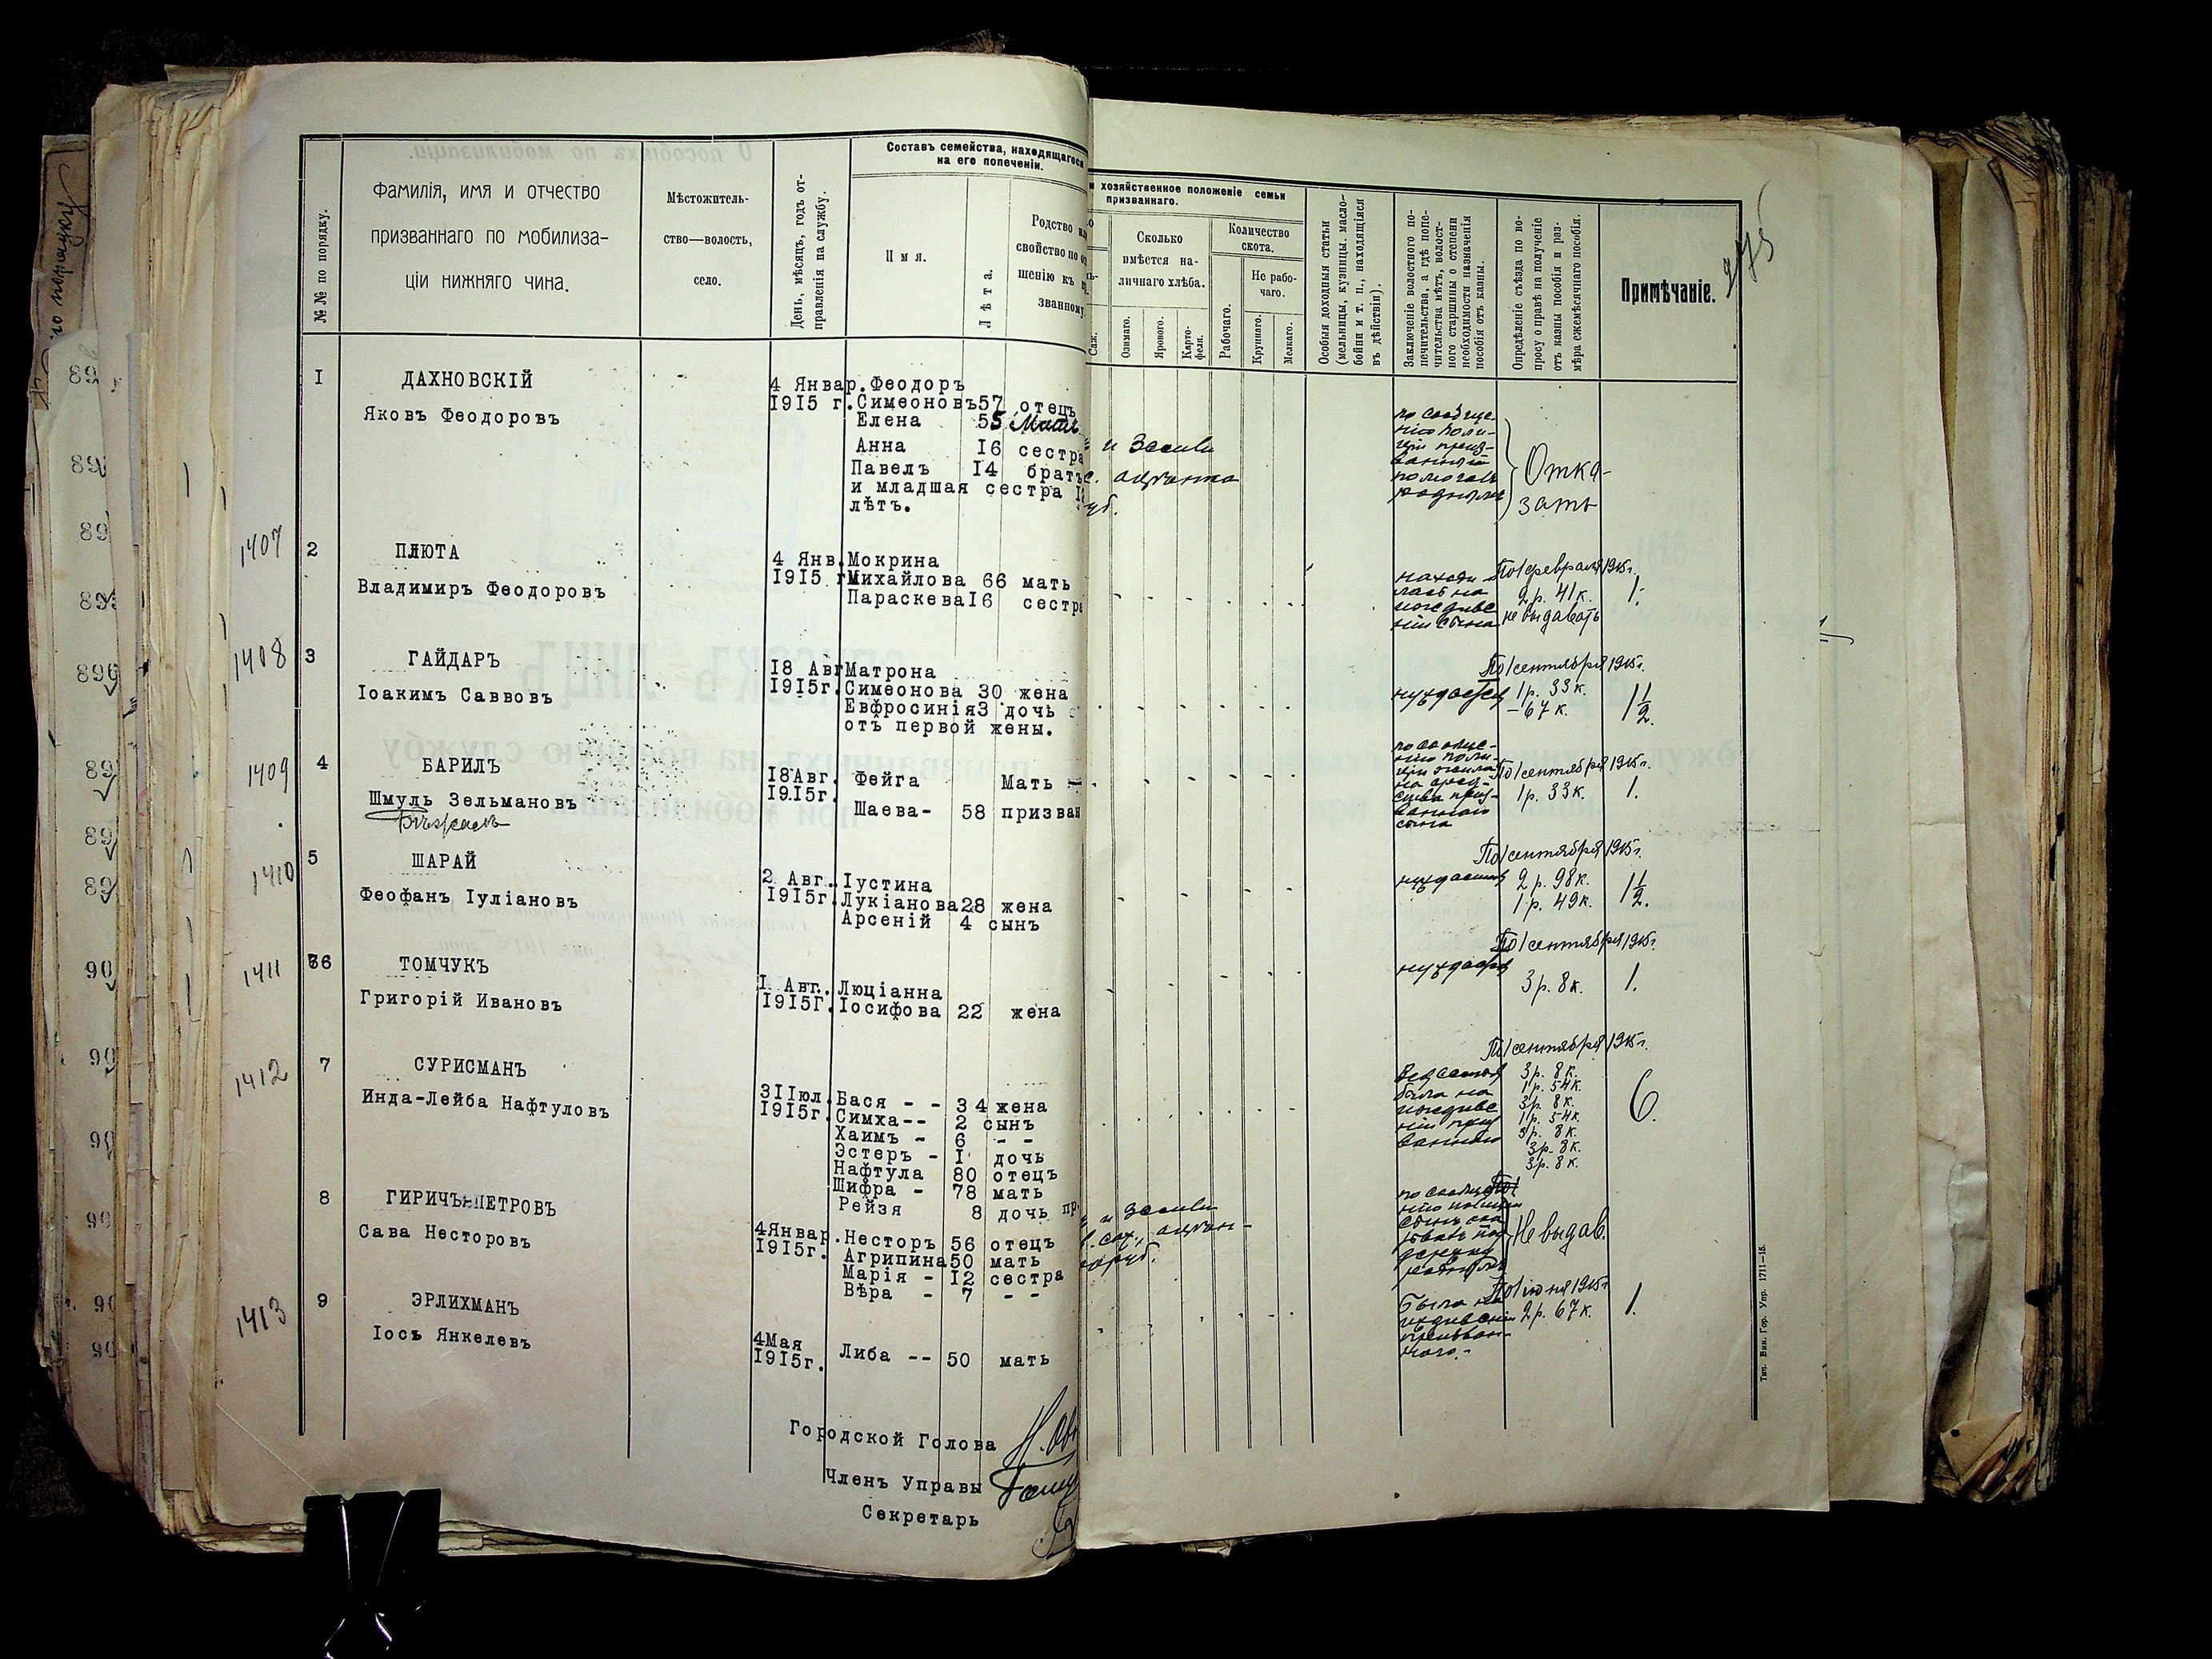 Составъ семейства, находящагося
на его попеченіи.
№№ по порядку.
Фамилія, имя и отчество
призваннаго по мобилиза-
ціи нижняго чина.
Мѣстожитель-
ство—волость,
село.
День, мѣсяцъ, годъ от-
правленія на службу.
Имя.
Лѣта.
Родство или
свойство по от
шенію къ пр
званному
и хозяйственное положеніе семьи
призваннаго.
Саж.
Сколько
имѣется на-
личнаго хлѣба.
Озимаго.
Яроваго.
Карто-
феля.
Количество
скота.
Рабочаго.
Не рабо-
чаго.
Крупнаго.
Мелкаго.
Особыя доходныя статьи
(мельницы, кузницы, масло-
бойни и т. п., находящіяся
въ дѣйствіи).
Заключеніе волостного по-
печительства, а гдѣ попе-
чительства нѣтъ, волост-
ного старшины о степени
необходимости назначенія
пособія отъ казны.
Опредѣленіе съѣзда по во-
просу о правѣ на полученіе
отъ казны пособія и раз-
мѣра ежемѣсячнаго пособія.
Примѣчаніе.
275
I ДАХНОВСКІЙ
Яковъ Феодоровъ
4 Январ. Феодоръ
1915 г. Симеоновъ 57 отецъ
Елена 55 Мать
Анна 16 сестра
Павелъ 14 братъ
и младшая сестра
лѣтъ.
по сообще-
нію поли-
ціи приз-
ванный
помогалъ
роднымъ
Отка-
зать
1407
2 ПЛЮТА
Владимиръ Феодоровъ
4 Янв. Мокрина
1915 г Михайлова 66 мать
Параскева 16 сестра
находи-
лась на
иждиве
ніи сына
По 1 февраля 1915 г.
2 р. 41 к.
не выдавать
1.
1408
3 ГАЙДАРЪ
Іоакимъ Саввовъ
18 Авг Матрона
1915г. Симеонова 30 жена
Евфросинія 3 дочь
отъ первой жены.
нуждается
По 1 сентября 1915 г.
1 р. 33 к.
– 67 к.
1 1/2.
1409
4 БАРИЛЪ
Шмуль Зельмановъ
18 Авг. Фейга Мать
1915г. Шаева- 58 призван
по сообще-
нію поли-
ціи жила
на сред-
ства приз-
ваннаго
сына
По 1 сентября 1915 г.
1 р. 33 к.
1.
1410
5 ШАРАЙ
Феофанъ Іуліановъ
2 Авг. Іустина
1915г. Лукіанова 28 жена
Арсеній 4 сынъ
нуждается
По 1 сентября 1915 г.
2 р. 98 к.
1 р. 49 к.
1 1/2.
1411
6 ТОМЧУКЪ
Григорій Ивановъ
I Авг. Люціанна
1915Г. Іосифова 22 жена
нуждается
По 1 сентября 1915 г.
3 р. 8 к.
1.
1412
7 СУРИСМАНЪ
Инда-Лейба Нафтуловъ
31 Іюл. Бася - - 34 жена
1915г. Симха-- 2 сынъ
Хаимъ - 6 - -
Эстеръ - I дочь
Нафтула 80 отецъ
Шифра - 78 мать
Рейзя 8 дочь пр.
Вся семья
была на
иждиве
ніи приз
ваннаго
По 1 сентября 1915 г.
3 р. 8 к.
1 р. 54 к.
3 р. 8 к.
1 р. 54 к.
3 р. 8 к.
3 р. 8 к.
3 р. 8 к.
6.
8 ГИРИЧЪ-ПЕТРОВЪ
Сава Несторовъ
4 Январ. Несторъ 56 отецъ
1915г. Агрипина 50 мать
Марія - 12 сестра
Вѣра - 7 - -
Не выдав.
1413
9 ЭРЛИХМАНЪ
Іось Янкелевъ
4 Мая
1915г. Либа -- 50 мать
Была на
иждивеніи
призван-
наго.-
По 1 іюня 1915 г
2 р. 67 к.
1.
Городской Голова
Членъ Управы
Секретарь
Тип. Вин. Гор. Упр. 1711—15.